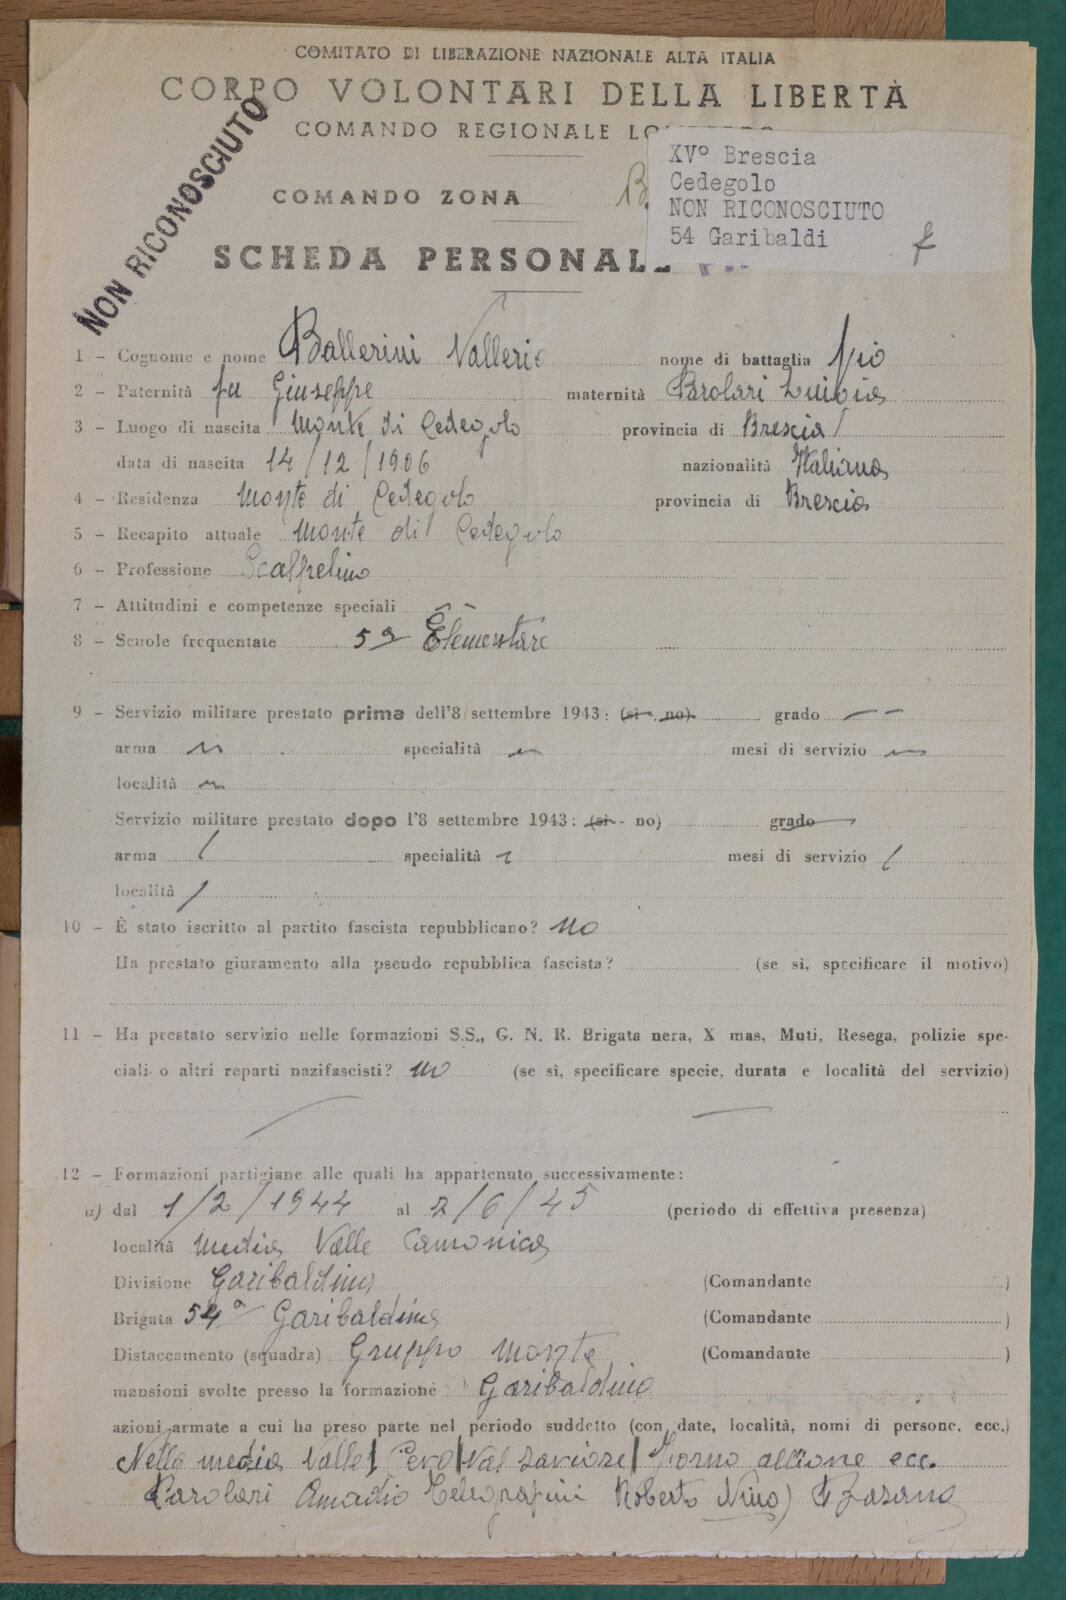 COMITATO DI LIBERAZIONE NAZIONALE ALTA ITALIA
CORPO VOLONTARI DELLA LIBERTÀ
COMANDO REGIONALE
NON RICONOSCIUTO
XVº Brescia
Cedegolo
NON RICONOSCIUTO
54 Garibaldi
COMANDO ZONA
SCHEDA PERSONALE
1 - Cognome e nome Ballerini Vallerio nome di battaglia
2 - Paternità fu Giuseppe maternità Parolari
3 - Luogo di nascita Monte di Cedegolo provincia di Brescia
data di nascita 14/12/1906 nazionalità Italiana
4 - Residenza Monte di Cedegolo provincia di Brescia
5 - Recapito attuale Monte di Cedegolo
6 - Professione Scalpelino
7 - Attitudini e competenze speciali - -
8 - Scuole frequentate 5ª Elementare
9 - Servizio militare prestato prima dell'8 settembre 1943: (si - no) grado - -
arma specialità mesi di servizio
località
Servizio militare prestato dopo l'8 settembre 1943: (si - no) grado
arma / specialità mesi di servizio /
località /
10 - È stato iscritto al partito fascista repubblicano? no
Ha prestato giuramento alla pseudo repubblica fascista? (se sì, specificare il motivo)
11 - Ha prestato servizio nelle formazioni S.S., G. N. R. Brigata nera, X mas, Muti, Resega, polizie spe-
ciali o altri reparti nazifascisti? no (se sì, specificare specie, durata e località del servizio)
12 - Formazioni partigiane alle quali ha appartenuto successivamente:
a) dal 1/2/1944 al 2/6/45 (periodo di effettiva presenza)
località media Valle Camonica
Divisione Garibaldina (Comandante )
Brigata 54ª Garibaldina (Comandante )
Distaccamento (squadra) Gruppo Monte (Comandante )
mansioni svolte presso la formazione Garibaldino
azioni armate a cui ha preso parte nel periodo suddetto (con date, località, nomi di persone, ecc.)
Nella media Valle Cevo Val Saviore Forno allione ecc.
Parolari Amadio Roberto Nino)